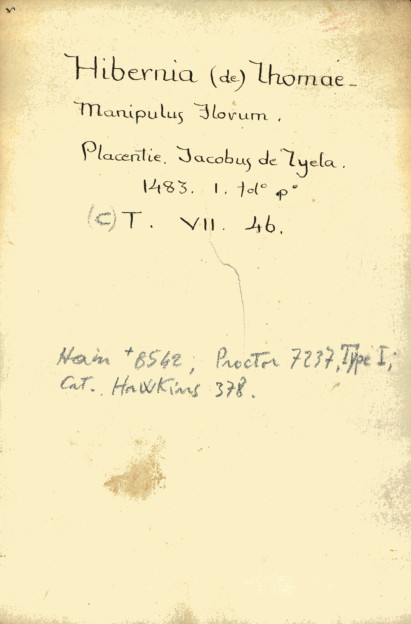 Hibernia (de) Thomae-
Manipulus Florum.
Placentie. Jacobus de Tyela.
1483. 1. tdº pº
(C) T. VII. 46.
Hain + 8542; Proctor 7237, Type I;
Cat. Hawkins 378.